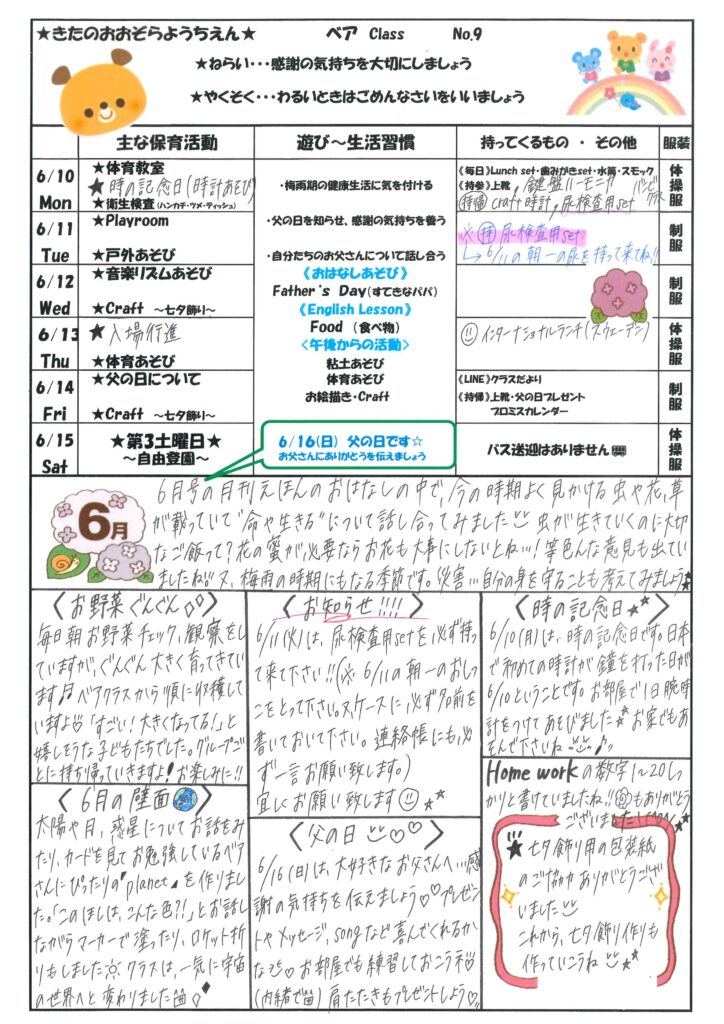 ★きたのおおぞらようちえん★ ベア Class No.9
★ねらい・・・感謝の気持ちを大切にしましょう
★やくそく・・・わるいときはごめんなさいをいいましょう
主な保育活動 遊び～生活習慣 持ってくるもの ・ その他 服装
6/10 Mon
★体育教室
★時の記念日(時計あそび)
★衛生検査(ハンカチ・ツメ・ティッシュ)
《毎日》Lunch set・歯みがきset・水筒・スモック
《持参》上靴, 鍵盤ハーモニカ
(持帰) craft時計, 尿検査用set
体操服
6/11 Tue
★Playroom
★戸外あそび
※(持) 尿検査用set
↳6/11の朝一の尿を持って来てね!!
制服
6/12 Wed
★音楽リズムあそび
★Craft ～七夕飾り～
制服
6/13 Thu
★入場行進
★体育あそび
インターナショナルランチ(スウェーデン)
体操服
6/14 Fri
★父の日について
★Craft ～七夕飾り～
《LINE》クラスだより
《持帰》上靴・父の日プレゼント
プロミスカレンダー
制服
6/15 Sat
★第3土曜日★
～自由登園～
バス送迎はありません
体操服
・梅雨期の健康生活に気を付ける
・父の日を知らせ、感謝の気持ちを養う
・自分たちのお父さんについて話し合う
《おはなしあそび》
Father's Day(すてきなパパ)
《English Lesson》
Food (食べ物)
<午後からの活動>
粘土あそび
体育あそび
お絵描き・Craft
6/16(日) 父の日です☆
お父さんにありがとうを伝えましょう
6月
6月号の月刊えほんのおはなしの中で、今の時期よく見かける虫や花、草
が載っていて"命や生きる"について話し合ってみました 虫が生きていくのに大切
なご飯って?花の蜜が必要ならお花も大事にしないとね…!等色んな意見も出てい
ましたね!!又、梅雨の時期にもなる季節です。災害…自分の身を守ることも考えてみましょう★
〈お野菜ぐんぐん〉
毎日朝お野菜チェック、観察をし
ていますが、ぐんぐん大きく育ってきてい
ます♬ベアクラスから順に収穫して
いますよ「すごい!大きくなってる!」と
嬉しそうな子どもたちでした。グループご
とに持ち帰っていきますよ!お楽しみに!!
〈6月の壁面〉
太陽や月、惑星についてお話をみ
たり、カードを見てお勉強しているベア
さんにぴったりの『planet』を作りまし
た。「このほしは、こんな色?!」とお話し
ながらマーカーで塗ったり、ロケット折
りもしました クラスは、一気に宇宙
の世界へと変わりました
〈お知らせ!!!!〉
6/11(火)は、尿検査用setを必ず持っ
て来て下さい!!(※6/11の朝一のおしっ
こをとって下さい。又ケースに必ず名前を
書いておいて下さい。連絡帳にも必
ず一言お願い致します。)
宜しくお願い致します
〈父の日〉
6/16(日)は、大好きなお父さんへ…感
謝の気持ちを伝えましょう♡♡プレゼン
トやメッセージ、songなど喜んでくれるか
な?♡お部屋でも練習しておこうネ
(内緒で)肩たたきもプレゼントしよう♡
〈時の記念日★★〉
6/10(月)は、時の記念日です。日本
で初めての時計が鐘を打った日が
6/10ということです。お部屋で1日腕時
計をつけてあそびました★お家でもあ
そんで下さいね♪
Home workの数字1～20しっ
かりと書けていましたね!!もありがとう
ございました!
★七夕飾り用の包装紙
のご協力ありがとうござ
いました
これから、七夕飾り作りも
作っていこうね